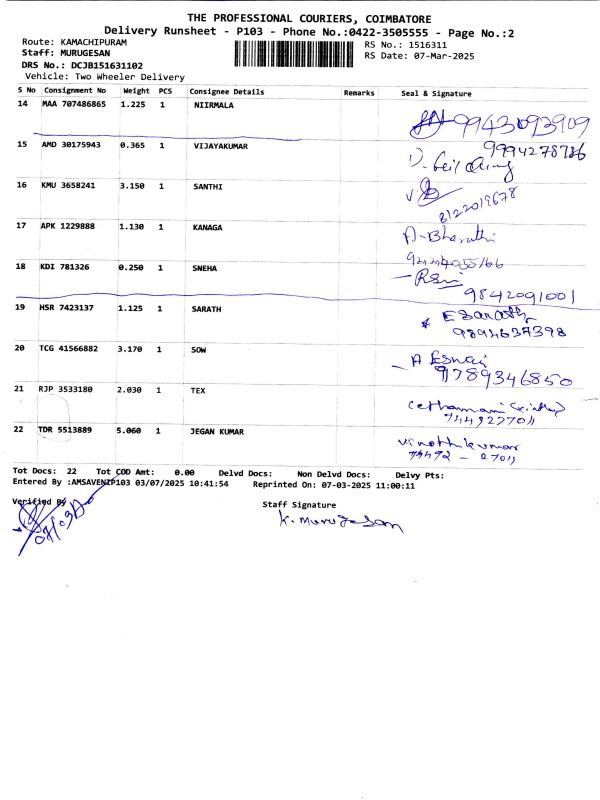 THE PROFESSIONAL COURIERS, COIMBATORE
Delivery Runsheet - P103 - Phone No.:0422-3505555 - Page No.:2
Route: KAMACHIPURAM
RS No.: 1516311
Staff: MURUGESAN
RS Date: 07-Mar-2025
DRS No.: DCJB151631102
Vehicle: Two Wheeler Delivery
S No Consignment No Weight PCS Consignee Details Remarks Seal & Signature
14 MAA 707486865 1.225 1 NIIRMALA
9943093909
15 AMD 30175943 0.365 1 VIJAYAKUMAR
16 KMU 3658241 3.150 1 SANTHI
8122019678
17 APK 1229888 1.130 1 KANAGA
A-Bharathi
18 KDI 781326 0.250 1 SNEHA
9842091001
19 HSR 7423137 1.125 1 SARATH
E Sarath
9894637398
20 TCG 41566882 3.170 1 SOW
9789346850
21 RJP 3533180 2.030 1 TEX
22 TDR 5513889 5.060 1 JEGAN KUMAR
Vinothkumar
Tot Docs: 22 Tot COD Amt: 0.00 Delvd Docs: Non Delvd Docs: Delvy Pts:
Entered By :AMSAVENIP103 03/07/2025 10:41:54 Reprinted On: 07-03-2025 11:00:11
Verified By
Staff Signature
K. Murugesan